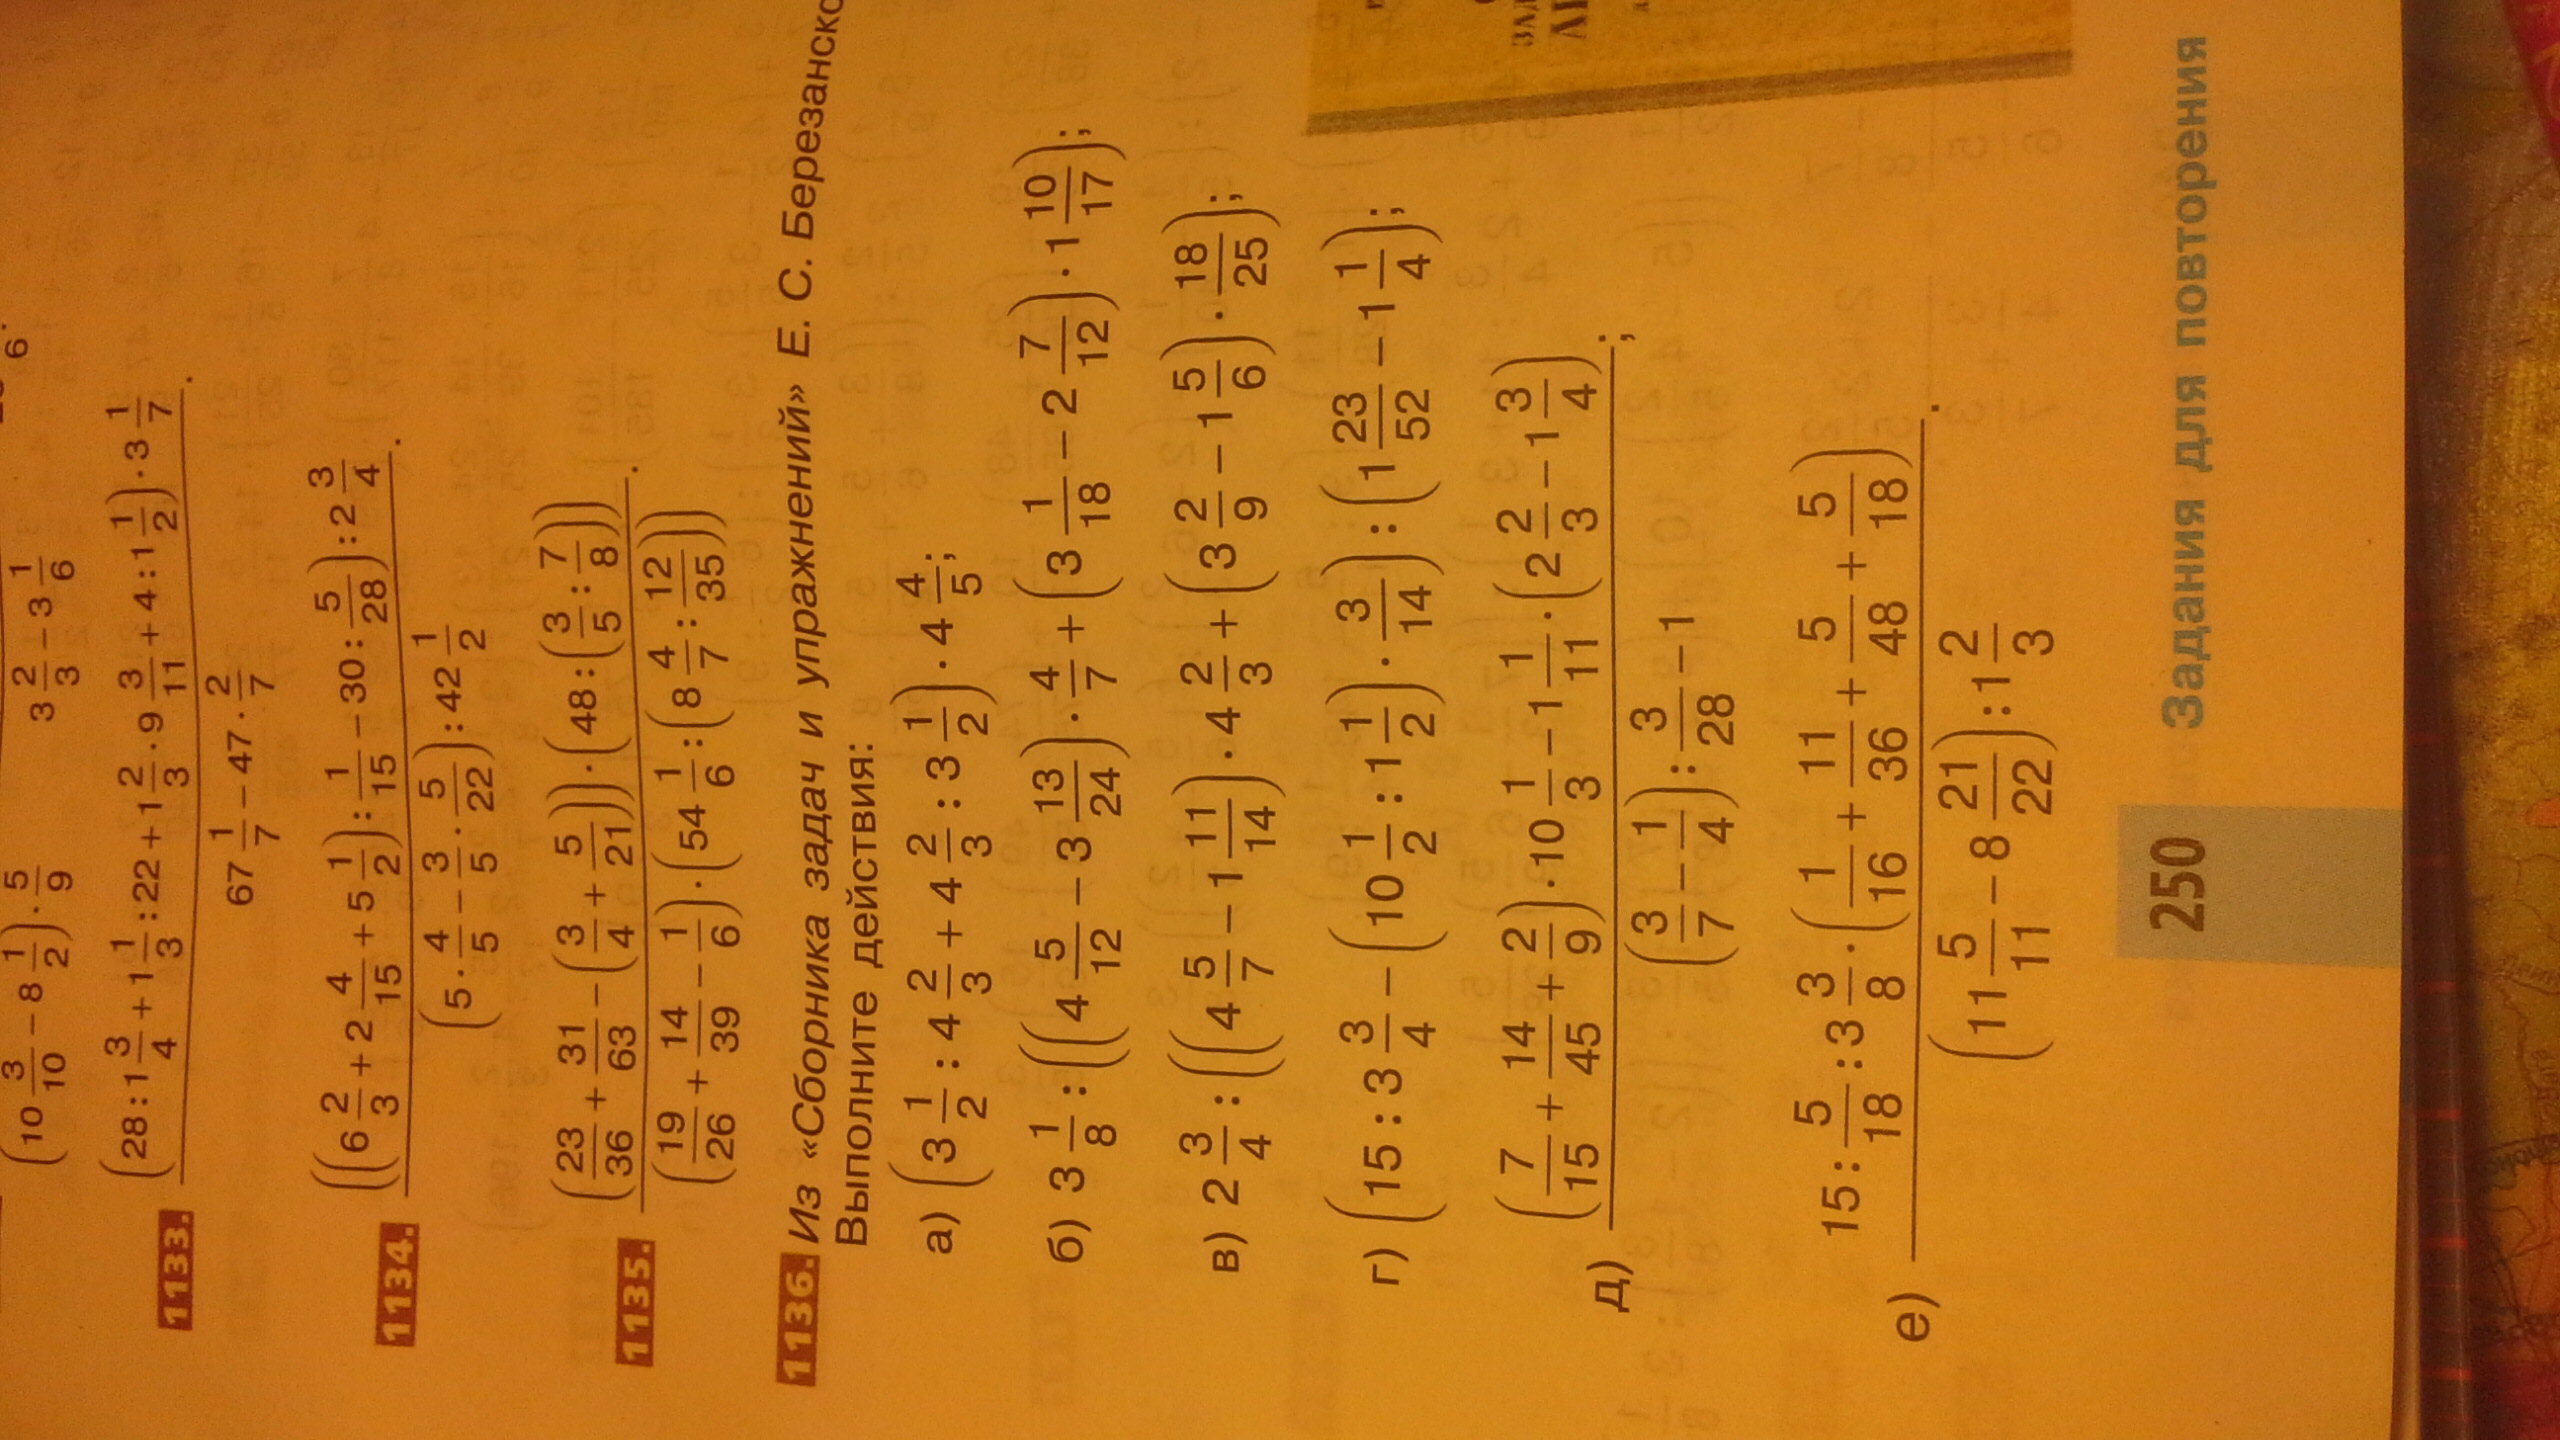 (10 3/10 − 8 1/2) · 5/9
3 2/3 − 3 1/6
1133. ((28 : 1 3/4 + 1 1/3 : 22 + 1 2/3 · 9 3/11 + 4 : 1 1/2) · 3 1/7) / (67 1/7 − 47 · 2/7).
1134. (((6 2/3 + 2 4/15 + 5 1/2) : 1/15 − 30 : 5/28) : 2 3/4) / ((5 · 4/5 − 3/5 · 5/22) : 42 1/2).
1135. ((23/36 + 31/63 − (3/4 + 5/21))) · (48 : (3/5 : 7/8))) / ((19/26 + 14/39 − 1/6) · (54 1/6 : (8 4/7 : 12/35))).
1136. Из «Сборника задач и упражнений» Е. С. Березанско
Выполните действия:
а) (3 1/2 : 4 2/3 + 4 2/3 : 3 1/2) · 4 4/5;
б) 3 1/8 : ((4 5/12 − 3 13/24) · 4/7 + (3 1/18 − 2 7/12) · 1 10/17);
в) 2 3/4 : ((4 5/7 − 1 11/14) · 4 2/3 + (3 2/9 − 1 5/6) · 18/25);
г) (15 : 3 3/4 − (10 1/2 : 1 1/2) · 3/14) : (1 23/52 − 1 1/4);
д) ((7/15 + 14/45 + 2/9) · 10 1/3 − 1 1/11 · (2 2/3 − 1 3/4)) / ((3/7 − 1/4) : 3/28 − 1);
е) (15 : 5/18 : 3 3/8 · (1/16 + 11/36 + 5/48 + 5/18)) / ((11 5/11 − 8 21/22) : 1 2/3).
250 Задания для повторения